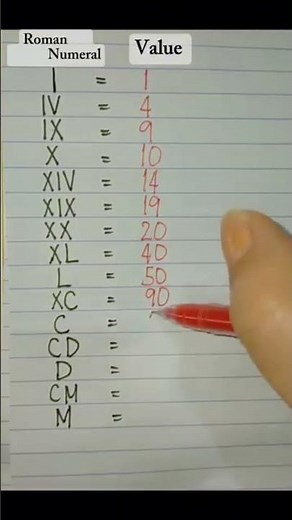 Roman Numeral Value
I = 1
IV = 4
IX = 9
X = 10
XIV = 14
XIX = 19
XX = 20
XL = 40
L = 50
XC = 90
C =
CD =
D =
CM =
M =